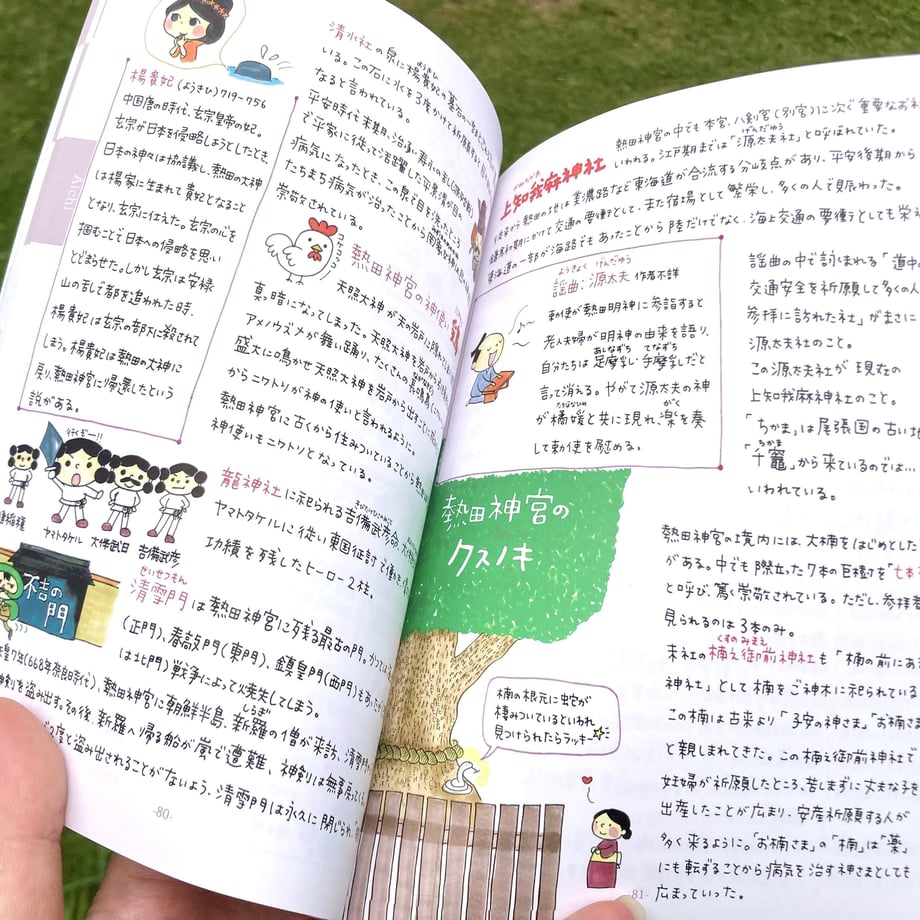 Aichi
楊貴妃(ようきひ)719-756
中国唐の時代、玄宗皇帝の妃。
玄宗が日本を侵略しようとしたとき、
日本の神々は協議し、熱田の大神
は楊家に生まれて貴妃となること
となり、玄宗に仕えた。玄宗の心を
掴むことで日本への侵略を思い
とどまらせた。しかし玄宗は安禄
山の乱で都を追われた時、
楊貴妃は玄宗の部下に殺されて
しまう。楊貴妃は熱田の大神に
戻り、熱田神宮に帰還したという
説がある。
行くぞー!!
建稲種
ヤマトタケル
大伴武日
吉備武彦
不吉の
門
清水社の泉に楊貴妃の墓石の一部と
いる。この石に水を3度かけて祈願すると
なると言われている。
平安時代末期、治承・寿永の乱(源平
で平家に従って活躍した平景清が目の
病気になったとき、この泉で目を洗ったところ
たちまち病気が治ったことから
崇敬されている。
コケコッコー
熱田神宮の神使い
天照大神が天の岩戸に隠れ
真っ暗になってしまった。天照大神を岩戸から
アメノウズメが舞い踊り、たくさんの長鳴鳥
盛大に鳴かせ天照大神を岩戸から出すことに
からニワトリが神の使いと言われるように。
熱田神宮に古くから住みついていることから
神使いもニワトリとなっている。
龍神社に祀られる吉備武彦命、大
ヤマトタケルに従い東国征討で働きを
功績を残したヒーロー2柱。
せいせつもん
清雪門は熱田神宮に残る最古の門。かつては
(正門)、春敲門(東門)、鎮皇門(西門)もあったが
は北門)戦争によって焼失してしまう。
皇7年(668年奈良時代)、熱田神宮に朝鮮半島、新羅の僧が来訪、清雪門
しらぎ
神剣を盗み出す。その後、新羅へ帰る船が嵐で遭難、神剣は無事戻って
2度と盗み出されることがないよう、清雪門は永久に閉じられ、
-80-
熱田神宮の中でも本宮、八剣宮(別宮)に次で重要なお社
いわれる。江戸期までは「源太夫社」と呼ばれていた。
げんだゆう
上知我麻神社
熱田の地は美濃路など東海道が合流する分岐点があり、平安後期から
にかけて交通の要衝として、また宿場として繁栄し、多くの人で賑わった。
東海道の一部が海路でもあったことから陸だけでなく、海上交通の要衝としても栄
ようきょく げんだゆう
謡曲:源太夫 作者不詳
勅使が熱田明神に参詣すると
老人夫婦が明神の由来を語り、
あしなずち てなずち
自分たちは足摩乳・手摩乳だと
言って消える。やがて源太夫の神
たちばなひめ がく
が橘媛と共に現れ、楽を奏
して勅使を慰める。
謡曲の中で詠まれる「道中
交通安全を祈願して多くの人
参拝に訪れた社」がまさに
源太夫社のこと。
この源太夫社が現在の
上知我麻神社のこと。
「ちかま」は尾張国の古い地
ちかま
「千竈」から来ているのでは…
いわれている。
熱田神宮の
クスノキ
楠の根元に蛇が
棲みついているといわれ
見つけられたらラッキー
熱田神宮の境内には、大楠をはじめとした
がある。中でも際立った7本の巨樹を「七本
と呼び、篤く崇敬されている。ただし、参拝者
見られるのは3本のみ。
くすのみまえ
末社の楠之御前神社も「楠の前にある
神社」として楠をご神木に祀られている
この楠は古来より「子安の神さま」「お楠さま
と親しまれてきた。この楠之御前神社で
妊婦が祈願したところ、苦しまずに丈夫な子を
出産したことが広まり、安産祈願する人が
多く来るように。「お楠さま」の「楠」は「薬」
にも転ずることから病気を治す神さまとしても
広まっていった。
-81-